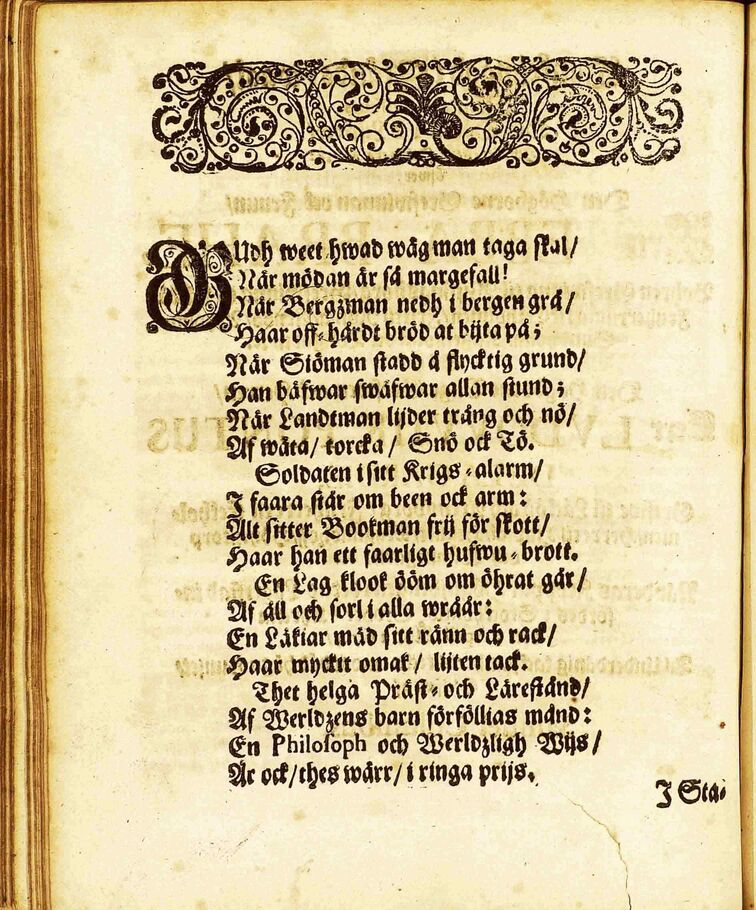 GUdh weet hwad wäg man taga skal/
När mödan är så margefall!
När Bergzman nedh i bergen grå/
Haar off-hårdt bröd at bijta på;
När Siöman stadd å flycktig grund/
Han bäfwar swäfwar allan stund;
När Landtman lijder träng och nö/
Af wäta/ torcka/ Snö ock Tö.
Soldaten i sitt Krigs-alarm/
I faara står om been ock arm:
Alt sitter Bookman frij för skott/
Haar han ett faarligt hufwu-brott.
En Lag klook ööm om öhrat går/
Af äll och sorl i alla wråår:
En Läkiar mäd sitt ränn och rack/
Haar myckit omak/ lijten tack.
Thet helga Präst- och Lärestånd/
Af Werldzens barn förföllias månd:
En Philosoph och Werldzligh Wijs/
Är ock/ thes wärr/ i ringa prijs.
I Stå-